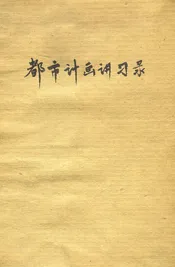 都市计画讲习录